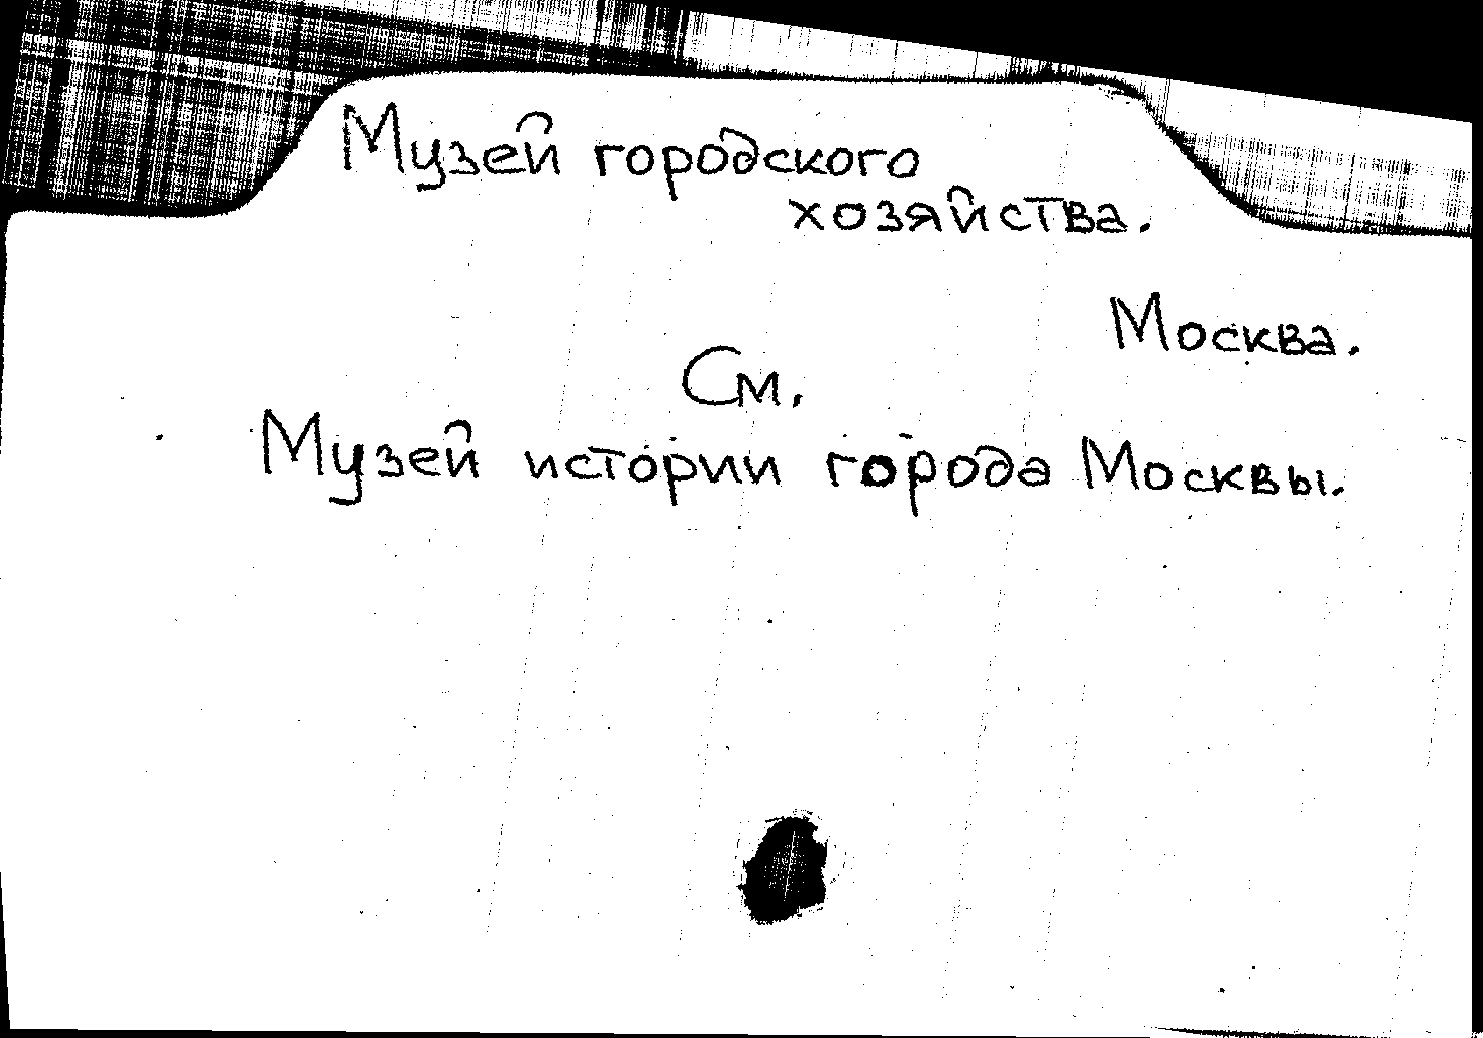 Музей городского
хозяйства.
Москва.
См.
Музей истории города Москвы.